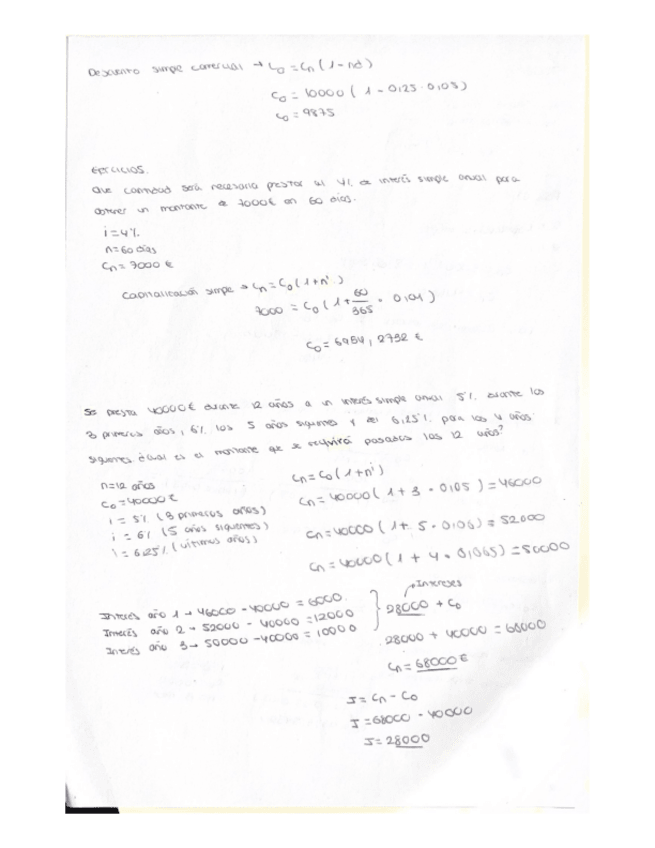 Descuento simple comercial → C₀ = Cₙ (1 - nd)
C₀ = 10000 ( 1 - 0,125 · 0,105)
C₀ = 9875
EJERCICIOS.
Que cantidad será necesaria prestar al 4% de interés simple anual para
obtener un montante de 7000€ en 60 días.
i = 4%
n = 60 días
Cₙ = 7000 €
Capitalización simple → Cₙ = C₀ (1 + nⁱ)
7000 = C₀ (1 + 60/365 · 0,04)
C₀ = 6954,2792 €
Se presta 40000€ durante 12 años a un interés simple anual 5% durante los
3 primeros años, 6% los 5 años siguientes y del 6,25% para los 4 años
siguientes ¿cual es el montante que se recibirá pasados los 12 años?
n = 12 años
C₀ = 40000 €
i = 5% (3 primeros años)
i = 6% (5 años siguientes)
i = 6,25% (ultimos años)
Cₙ = C₀ (1 + nⁱ)
Cₙ = 40000 ( 1 + 3 · 0,05) = 46000
Cₙ = 40000 ( 1 + 5 · 0,06) = 52000
Cₙ = 40000 ( 1 + 4 · 0,065) = 50000
Interés año 1 → 46000 - 40000 = 6000.
Interés año 2 → 52000 - 40000 = 12000
Interés año 3 → 50000 - 40000 = 10000
→ Intereses
28000 + C₀
28000 + 40000 = 68000
Cₙ = 68000 €
I = Cₙ - C₀
I = 68000 - 40000
I = 28000